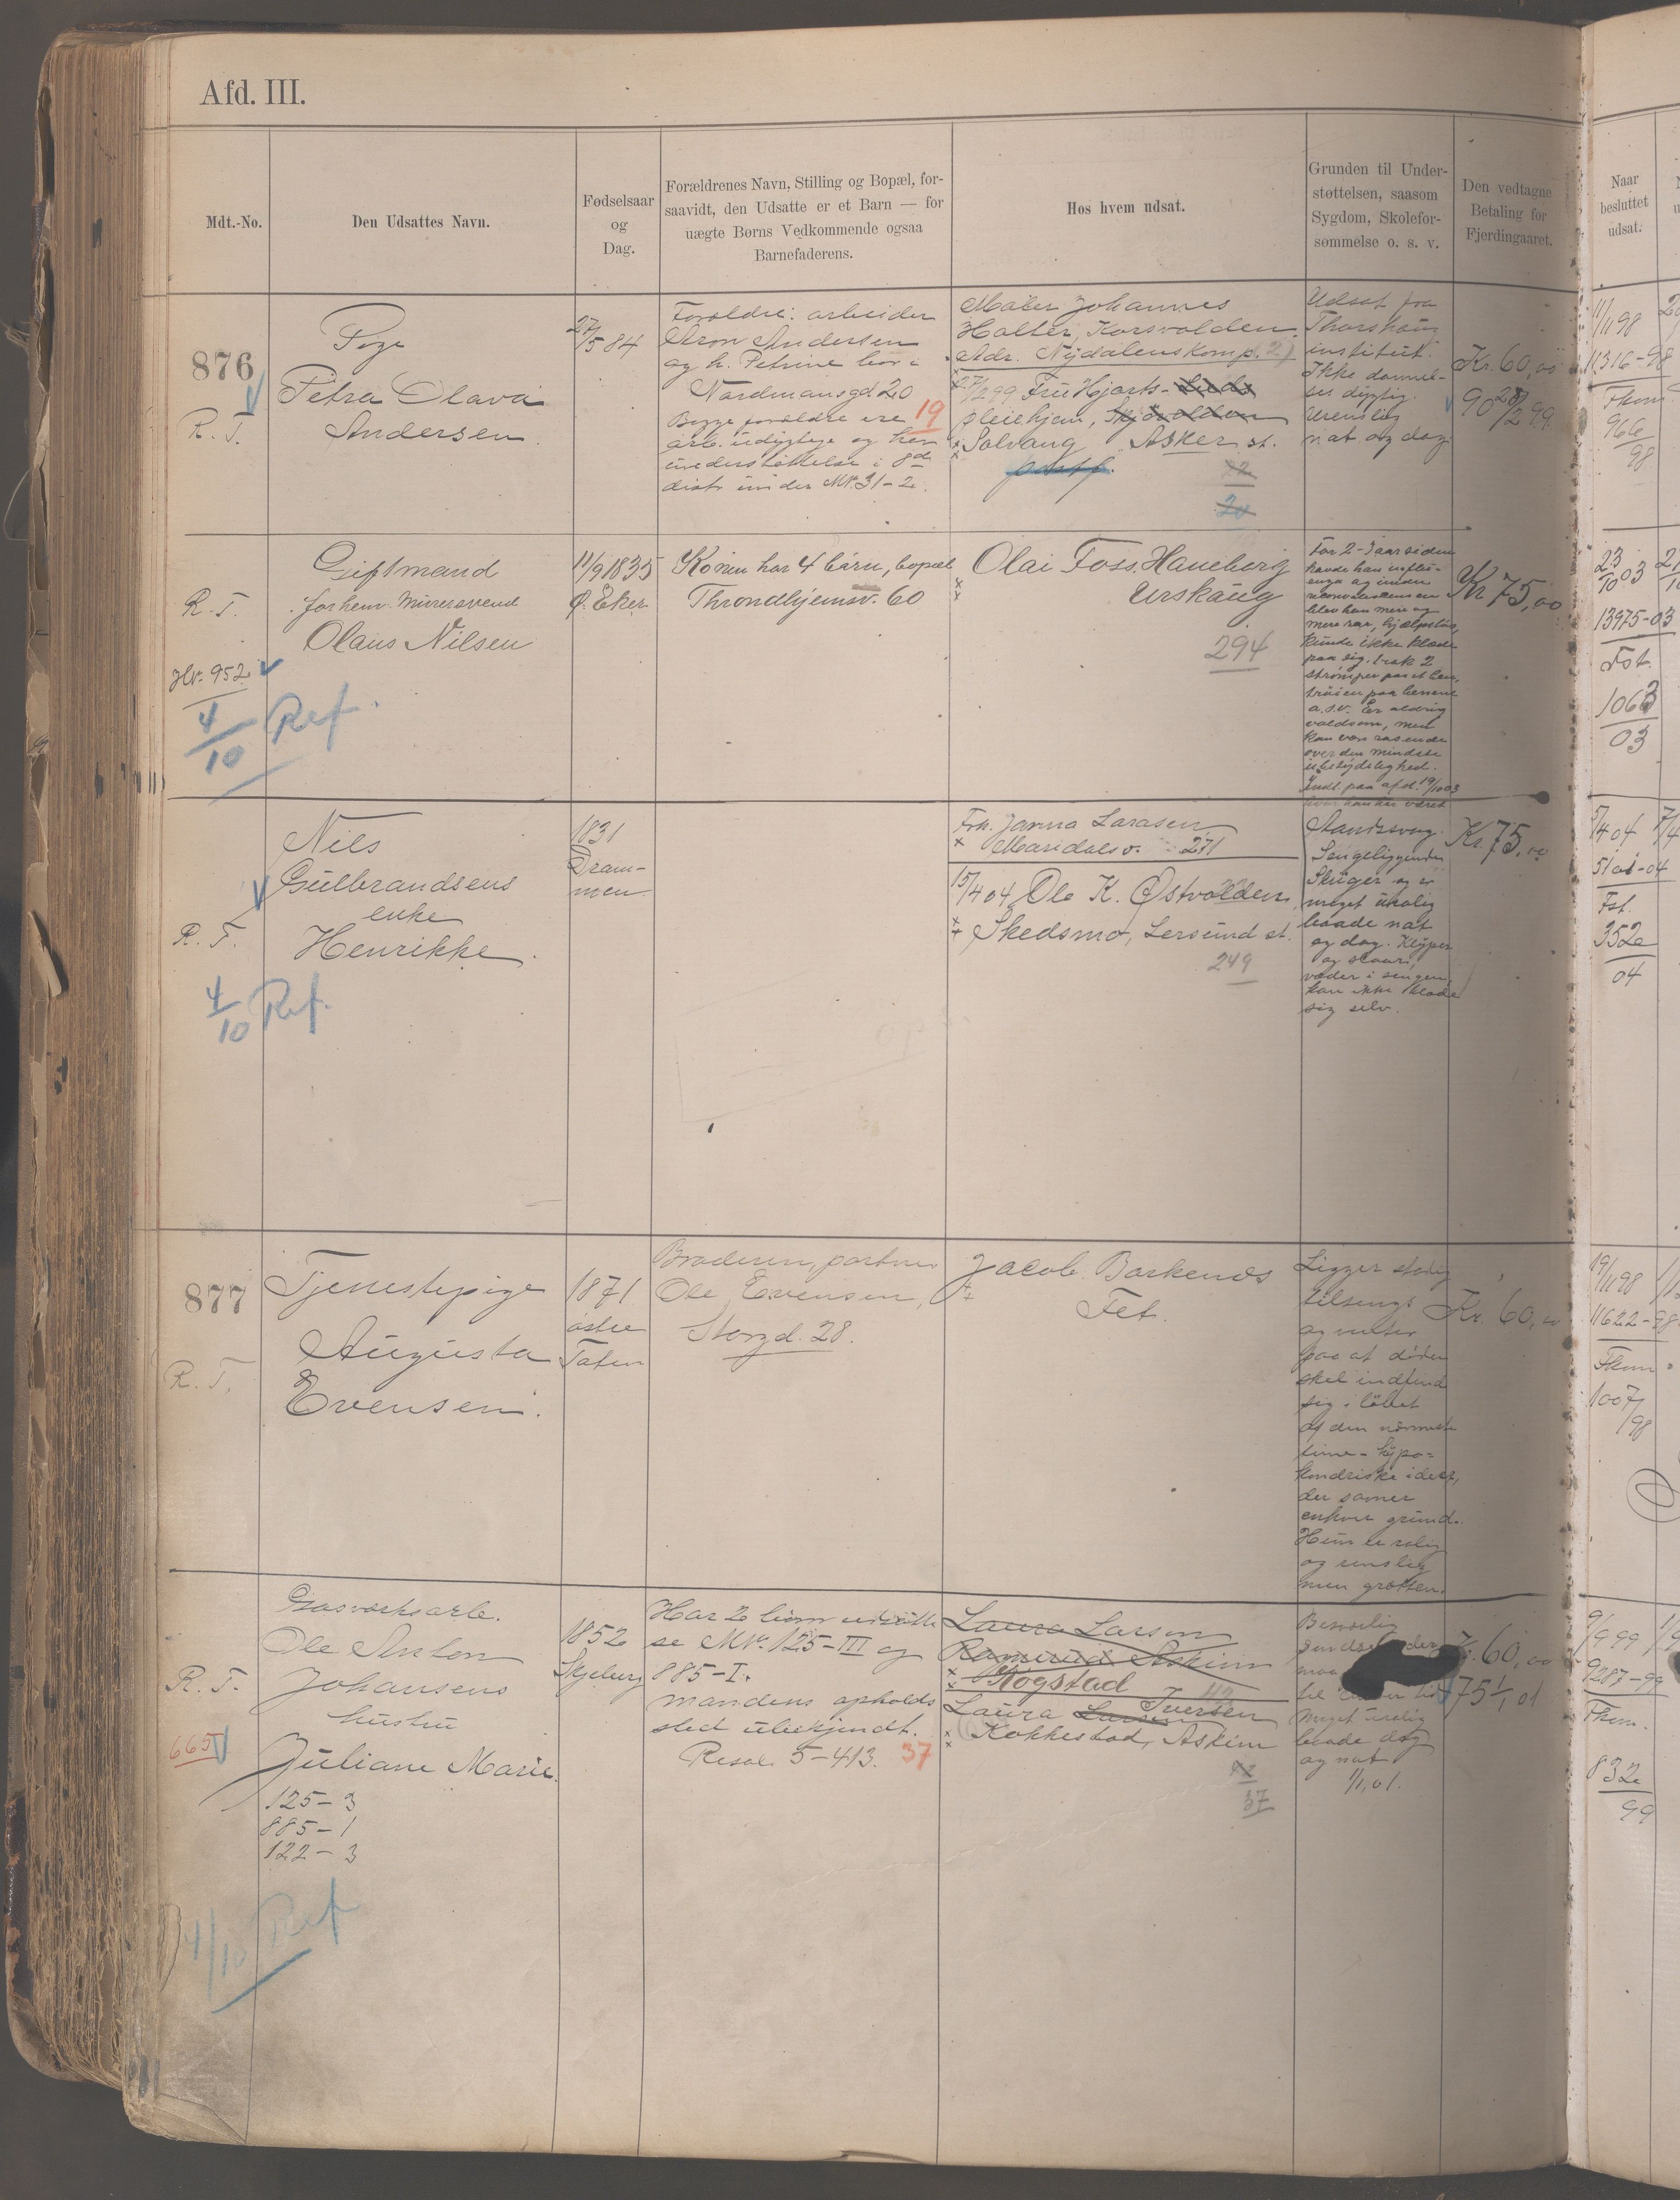 Afd. III.
Mdt.-No.
Den Udsattes Navn.
Fødselsaar
og
Dag.
Forældrenes Navn, Stilling og Bopæl, for-
saavidt, den Udsatte er et Barn — for
uægte Børns Vedkommende ogsaa
Barnefaderens.
Hos hvem udsat.
Grunden til Under-
støttelsen, saasom
Sygdom, Skolefor-
sømmelse o. s. v.
Den vedtagne
Betaling for
Fjerdingaaret.
Naar
besluttet
udsat.
876
R. T.
Pige
Petra Olava
Andersen
27/5 84
Forældre: arbeider
Aron Andersen
og h. Petrine bor i
Nordmansgd 20
Begge forældre ere 19
arb. udygtige og har
understøttelse i 8de
distr under Mt. 31-2.
Maler Johannes
Halter, Korsvolden
Adr. Nydalens komp. 2)
27/2 99 Frü Hjorts-
pleiehjem,
Solvang Asker st.
20
Udsat fra
Thorshaug
institut.
Ikke dannel-
ses dygtig.
Urenslig
nat og dag
Kr. 60,00
90 28/2 99.
11/11 98
11316-98
Fhem
966
98
R. T.
Hv. 952
4/10 Ref.
Giftmand
forhenv. Murersvend
Olaus Nilsen
11/9 1835
Ø. Eker
Konen har 4 børn, bopæl
Throndhjemsv. 60
Olai Foss, Haneborg
Urskaug
294
For 2-3 aar siden
havde han influ-
enza og under
blev han mere og
mere rar, hjælpeløs,
kunde ikke klæde
paa sig, trak 2
strømper paa et ben,
trøien paa benene
o.s.v. Er aldrig
voldsom, men
kan være rasende
over den mindste
ubetydelighed.
Indl. paa afd. 19/10 03
hvor han har været
Kr 75,00
23/10 03
13975-03
Fst.
1063
03
R. T.
4/10 Ref.
Nils
Gulbrandsens
enke
Henrikke
1831
Dram-
men
Frk. Janna Larasen
Maridalsv. 271
15/4 04 Ole K. Østvolden
Skedsmo, Lersund st.
249
Aandssvag.
Sengeliggende
Skriger og er
meget urolig
baade nat
og dag. Klyper
og slaar,
væder i sengen
kan ikke klæde
sig selv.
Kr. 75,00
5/4 04
5101-04
Fst.
352
04
877
R. T.
Tjenestepige
Augusta
Evensen.
1871
østre
Toten
Broderen, portner
Ole Evensen,
Storgd. 28.
Jacob Barkenæs
Fet.
Ligger stadig
tilsengs
og venter
paa at døden
skal indfinde
sig i løbet
af den nærmeste
time - hypo-
kondriske ideer,
der savner
enhver grund.
Hun er rolig
og renslig
men grætten.
Kr. 60,00
19/11 98
11622-98
Fhem
1007/98
R. T.
665
Gasværksarb.
Ole Anton
Johansens
hustru
Juliane Marie.
125-3
885-1
122-3
4/10 Ref
1852
Skjeberg
Har 2 børn udsatte
se Mt. 125-III og
885-I.
mandens opholds
sted ubekjendt.
Resol. 5-413. 37
Laura Larsen
Ramerud Askim
Rogstad
Laura Larsen Iversen
Kokkestad, Askim
37
til
Meget urolig
baade dag
og nat
1/1, 01.
Kr. 60,00
75 1/1 01
9/9 99
9287-99
Fhem.
832
99